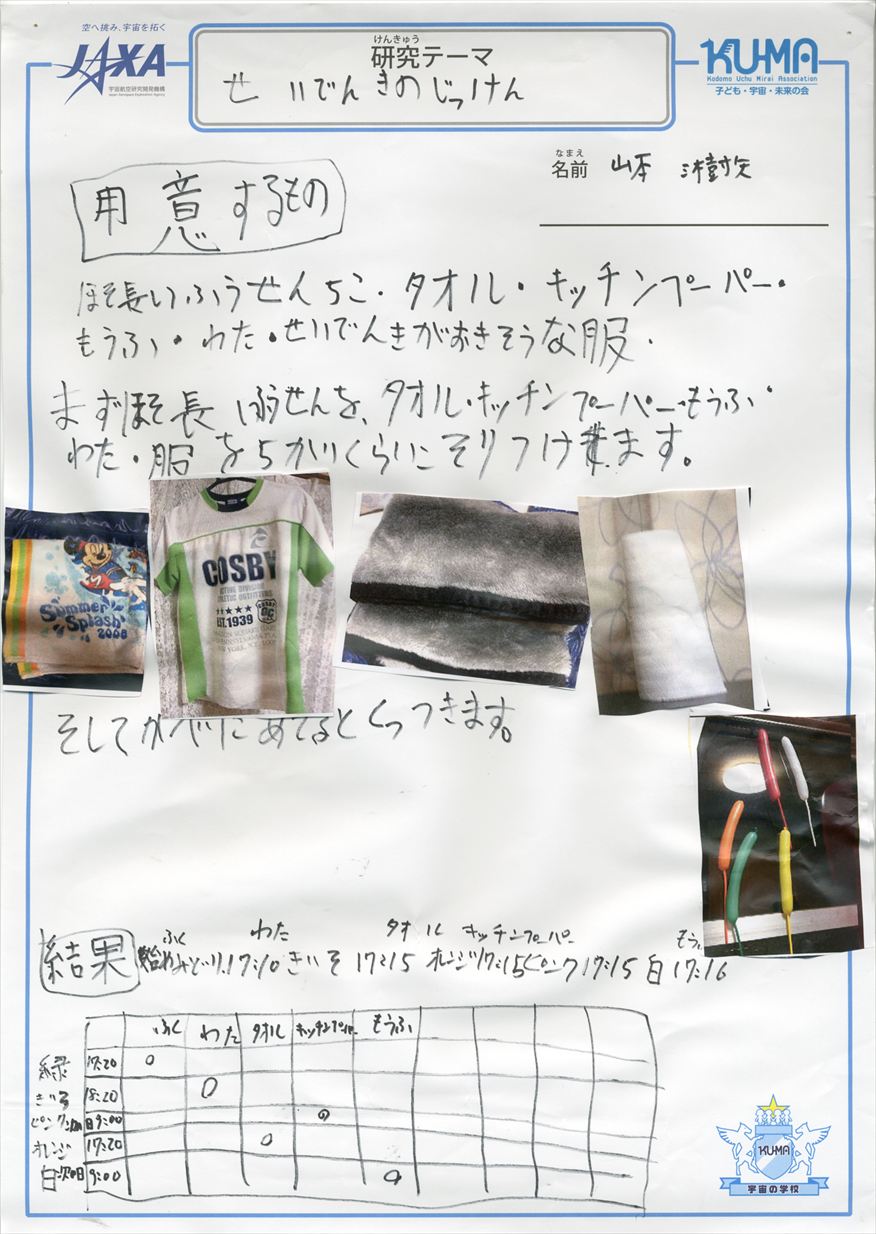 空へ挑み、宇宙を拓く
JAXA
宇宙航空研究開発機構
Japan Aerospace Exploration Agency
けんきゅう
研究テーマ
せいでんきのじっけん
KU-MA
Kodomo Uchu Mirai Association
子ども・宇宙・未来の会
なまえ
名前 山本
用意するもの
ほそ長いふうせん5こ・タオル・キッチンペーパー・
もうふ・わた・せいでんきがおきそうな服・
まずほそ長いふうせんを、タオル・キッチンペーパー・もうふ・
わた・服を5かいくらいこすりつけます。
Summer
Splash
2008
COSBY
ACTIVE DIVISION
ATHLETIC OUTFITTERS
EST.1939
NEW YORK, N.Y. 1000
そしてかべにあてるとくっつきます。
ふく わた タオル キッチンペーパー もう
結果 始めみどり17:10 きいろ 17:15 オレンジ17:15 ピンク17:15 白17:16
ふく わた タオル キッチンペーパー もうふ
緑 17:20 ○
きいろ 18:20 ○
ピンク 9:00 ○
オレンジ 17:20 ○
白次の日 9:00 ○
KU-MA
宇宙の学校